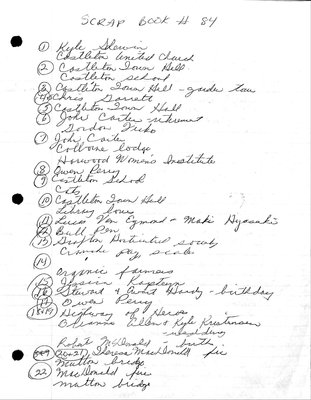 SCRAP BOOK # 84
① Kyle
Castleton United Church
② Castleton Town Hall
Castleton School
③ Castleton Town Hall - garden tour
④ Chris Garrett
⑤ Castleton Town Hall
⑥ John Carter - retirement
Gordon
⑦ John Carter
Colborne lodge
Horwood Women's Institute
⑧ Owen Perry
⑨ Castleton School
⑩ Castleton Town Hall
Library hours
⑪ Lucas Van Egmond & Maki
⑫ Bull Pen
⑬ Grafton Horticultural society
Cramahe pay scale
⑭
Organic farmers
⑮ Jessica
⑯ Steward & Hardy - birthday
⑰ Owen Perry
18+19 Highway of Heros
Ellen & Kyle
- wedding
Robert McDonald - birth
20+21 Theresa MacDonald fire
Mutton bridge
㉒ MacDonald fire
mutton bridge